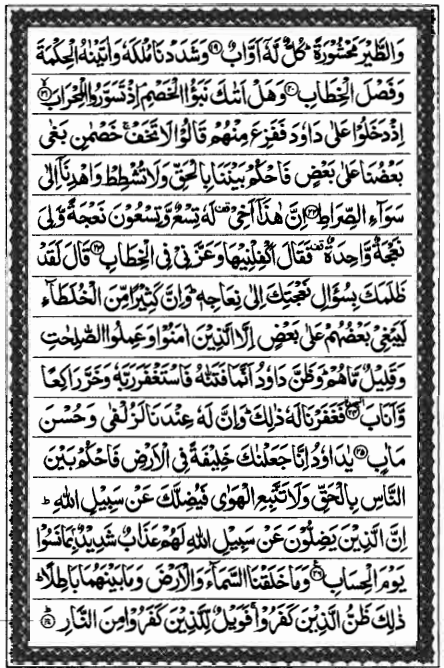 وَالطَّيْرَ مَحْشُوْرَةً ؕ كُلٌّ لَّهٗۤ اَوَّابٌ ﴿۱۹﴾ وَشَدَدْنَا مُلْكَهٗ وَاٰتَيْنٰهُ الْحِكْمَةَ
وَفَصْلَ الْخِطَابِ ﴿۲۰﴾ وَهَلْ اَتٰىكَ نَبَؤُا الْخَصْمِ ۘ اِذْ تَسَوَّرُوا الْمِحْرَابَ ﴿۲۱﴾
اِذْ دَخَلُوْا عَلٰى دَاوٗدَ فَفَزِعَ مِنْهُمْ قَالُوْا لَا تَخَفْ ۚ خَصْمٰنِ بَغٰى
بَعْضُنَا عَلٰى بَعْضٍ فَاحْكُمْ بَيْنَنَا بِالْحَقِّ وَلَا تُشْطِطْ وَاهْدِنَاۤ اِلٰى
سَوَآءِ الصِّرَاطِ ﴿۲۲﴾ اِنَّ هٰذَاۤ اَخِيْ ۫ لَهٗ تِسْعٌ وَّتِسْعُوْنَ نَعْجَةً وَّلِيَ
نَعْجَةٌ وَّاحِدَةٌ ۫ فَقَالَ اَكْفِلْنِيْهَا وَعَزَّنِيْ فِي الْخِطَابِ ﴿۲۳﴾ قَالَ لَقَدْ
ظَلَمَكَ بِسُؤَالِ نَعْجَتِكَ اِلٰى نِعَاجِهٖ ؕ وَاِنَّ كَثِيْرًا مِّنَ الْخُلَطَآءِ
لَيَبْغِيْ بَعْضُهُمْ عَلٰى بَعْضٍ اِلَّا الَّذِيْنَ اٰمَنُوْا وَعَمِلُوا الصّٰلِحٰتِ
وَقَلِيْلٌ مَّا هُمْ ؕ وَظَنَّ دَاوٗدُ اَنَّمَا فَتَنّٰهُ فَاسْتَغْفَرَ رَبَّهٗ وَخَرَّ رَاكِعًا
وَّاَنَابَ ﴿۲۴﴾ فَغَفَرْنَا لَهٗ ذٰلِكَ ؕ وَاِنَّ لَهٗ عِنْدَنَا لَزُلْفٰى وَحُسْنَ
مَاٰبٍ ﴿۲۵﴾ يٰدَاوٗدُ اِنَّا جَعَلْنٰكَ خَلِيْفَةً فِي الْاَرْضِ فَاحْكُمْ بَيْنَ
النَّاسِ بِالْحَقِّ وَلَا تَتَّبِعِ الْهَوٰى فَيُضِلَّكَ عَنْ سَبِيْلِ اللّٰهِ ؕ
اِنَّ الَّذِيْنَ يَضِلُّوْنَ عَنْ سَبِيْلِ اللّٰهِ لَهُمْ عَذَابٌ شَدِيْدٌۢ بِمَا نَسُوْا
يَوْمَ الْحِسَابِ ﴿۲۶﴾ وَمَا خَلَقْنَا السَّمَآءَ وَالْاَرْضَ وَمَا بَيْنَهُمَا بَاطِلًا ؕ
ذٰلِكَ ظَنُّ الَّذِيْنَ كَفَرُوْا ۚ فَوَيْلٌ لِّلَّذِيْنَ كَفَرُوْا مِنَ النَّارِ ﴿۲۷﴾